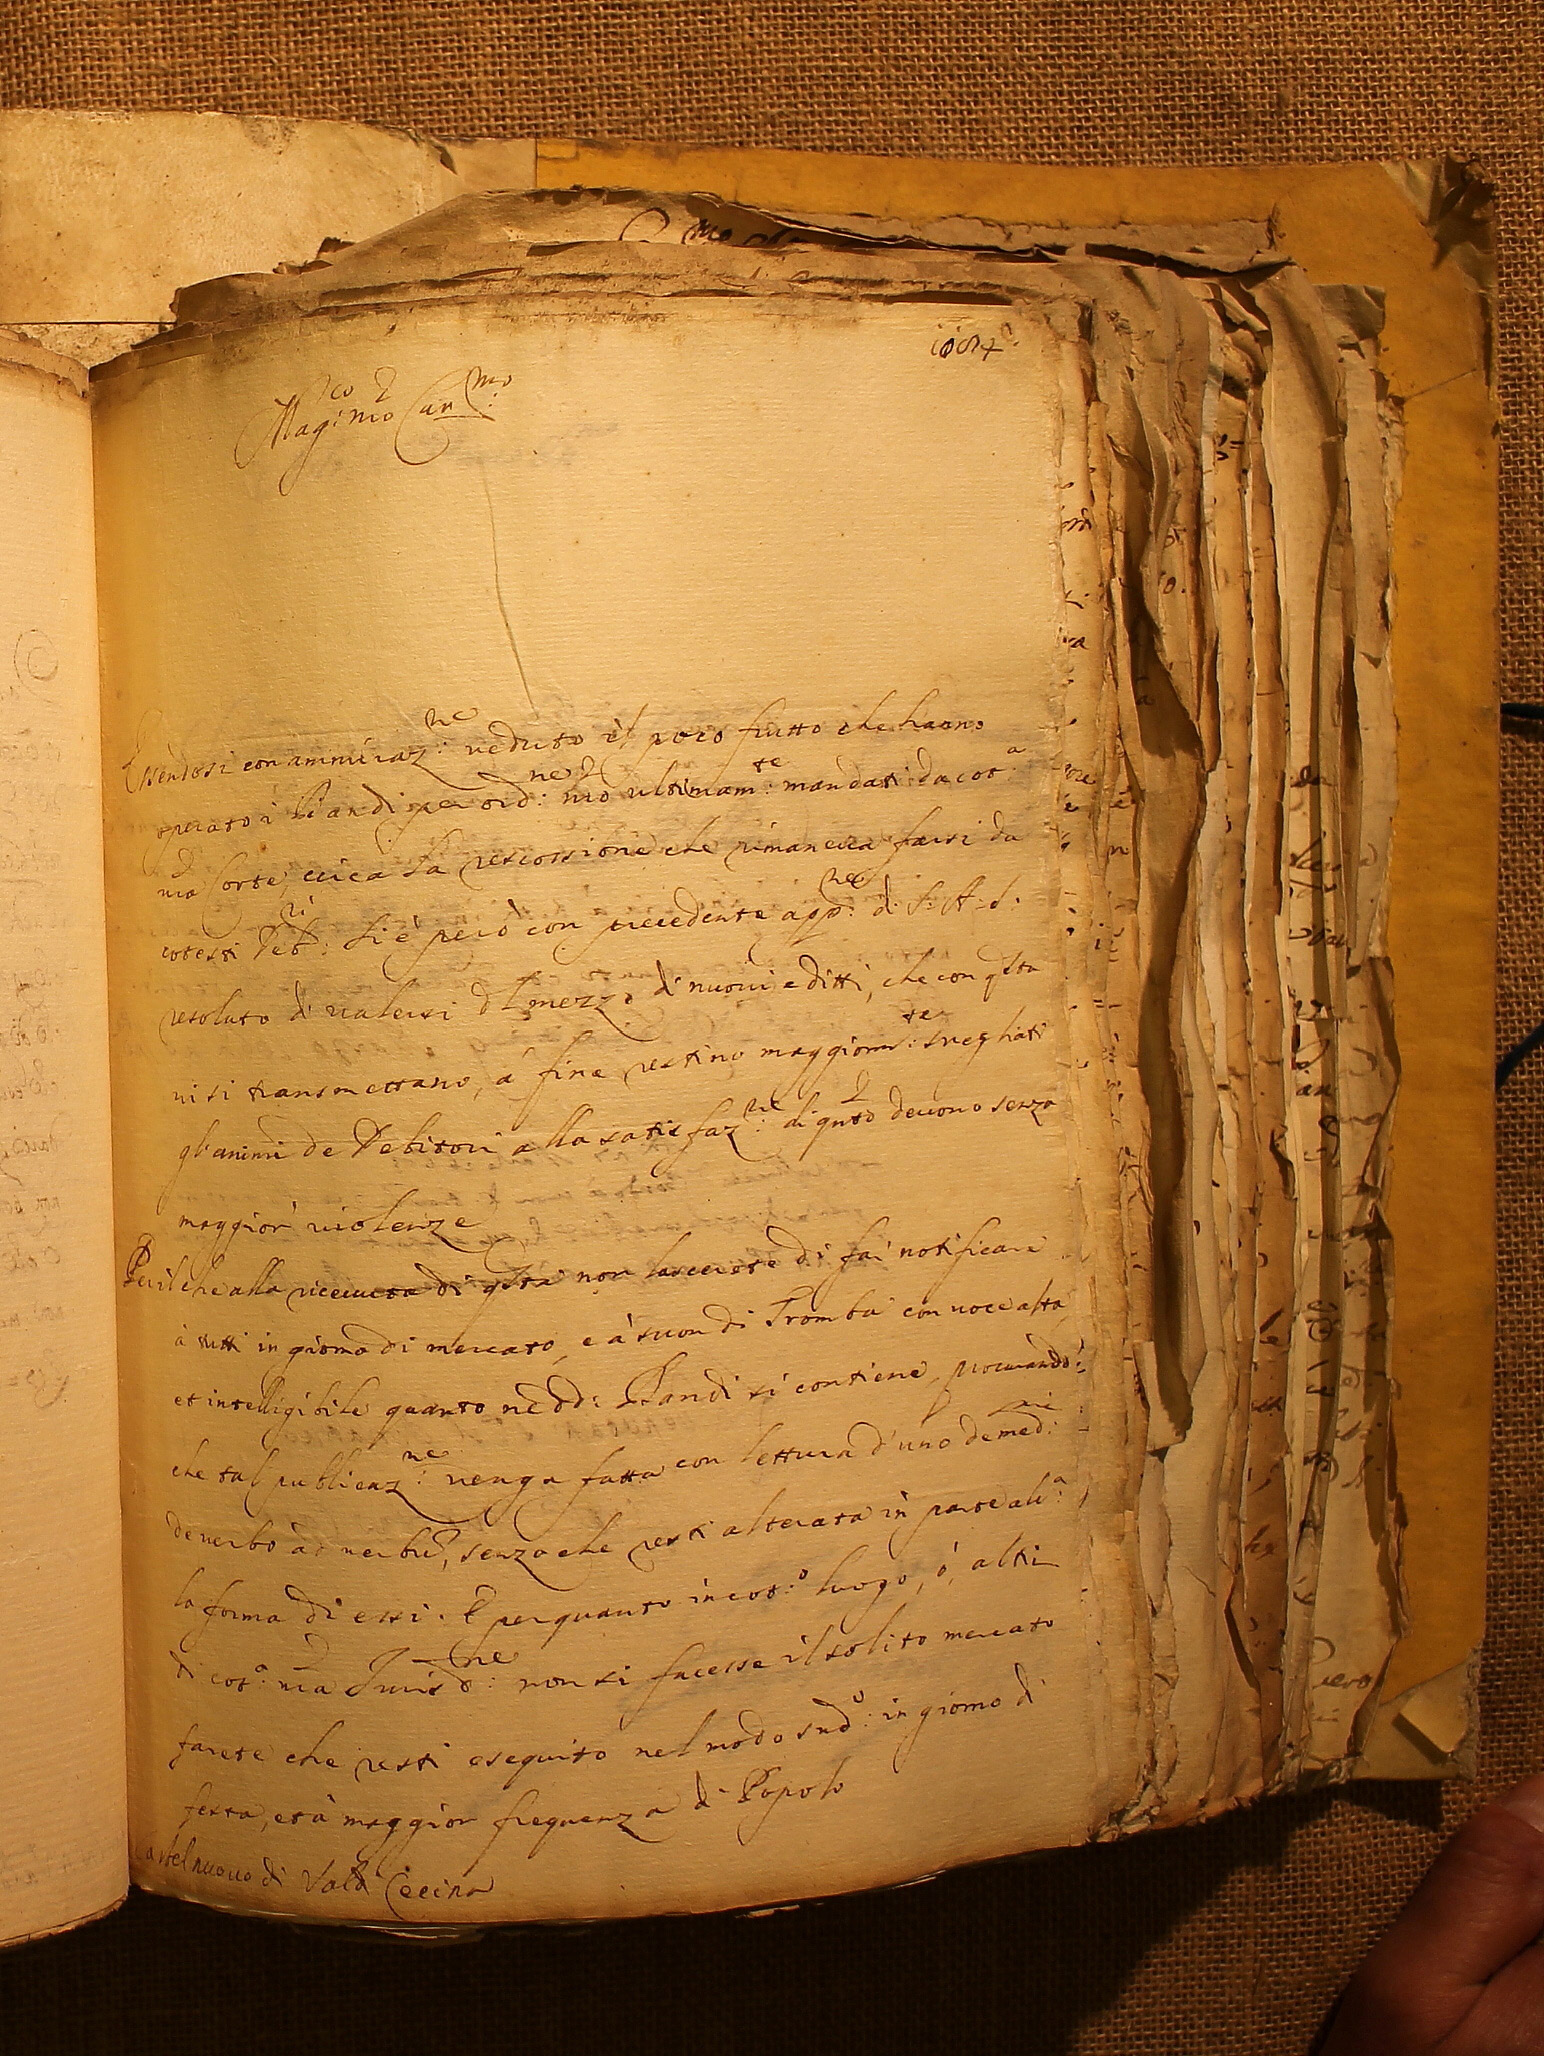 Mag.co nio Car.mo
Essendosi con ammiraz.ne veduto il poco frutto che hanno
operato i Bandi per ord.ne nro ultimam.te mandati da cot.a
vra Corte, circa la rescossione che rimaneva farsi da
cotesti Deb.ri si è però con precedente app.ne di S. A. S.
resoluto di valersi del mezzo di nuovi editti, che con qsta
vi si transmettano, á fine restino maggiorm.te svegliati
gl'animi de Debitori alla satisfaz.ne di qnto devono senza
maggiori violenze
Perilche alla ricevuta di qsta non lascerete di far notificare
à tutti in giorno di mercato, e à suon di Tromba con voce alta,
et intelligibile quanto ne dd: Bandi si contiene, procurando
che tal publicaz.ne venga fatta con lettura d'uno de med.mi
de verbo ad verbū, senza che resti alterata in parte alc.a
la forma di essi. E perquanto in cot.o luogo, ó, altri
di cot.a vra Jurisd.ne non si facesse il solito mercato
farete che resti eseguito nel modo sud.o in giorno di
festa, et à maggior frequenza di Popolo
Castelnuovo di Val di Cecina